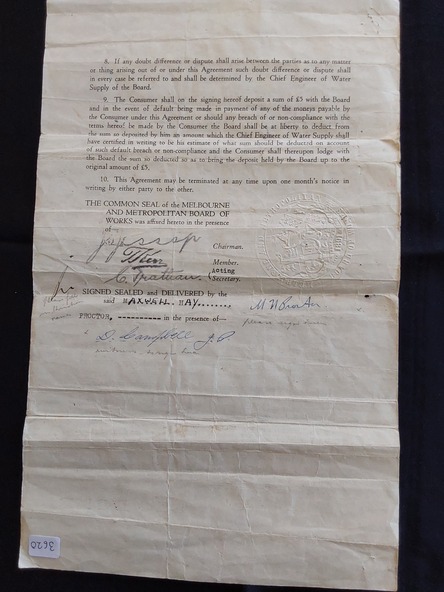 8. If any doubt difference or dispute shall arise between the parties as to any matter
or thing arising out of or under this Agreement such doubt difference or dispute shall
in every case be referred to and shall be determined by the Chief Engineer of Water
Supply of the Board.
9. The Consumer shall on the signing hereof deposit a sum of £5 with the Board
and in the event of default being made in payment of any of the moneys payable by
the Consumer under this Agreement or should any breach of or non-compliance with the
terms hereof be made by the Consumer the Board shall be at liberty to deduct from
the sum so deposited by him an amount which the Chief Engineer of Water Supply shall
have certified in writing to be his estimate of what sum should be deducted on account
of such default breach or non-compliance and the Consumer shall thereupon lodge with
the Board the sum so deducted so as to bring the deposit held by the Board up to the
original amount of £5.
10. This Agreement may be terminated at any time upon one month's notice in
writing by either party to the other.
THE COMMON SEAL of the MELBOURNE
AND METROPOLITAN BOARD OF
WORKS was affixed hereto in the presence
of—
Chairman.
Member.
Acting
Secretary.
SIGNED SEALED and DELIVERED by the
said MAXWELL HAY
PROCTOR, ---------- in the presence of—
please sign here
D. Campbell J.P.
witness to sign here
3620